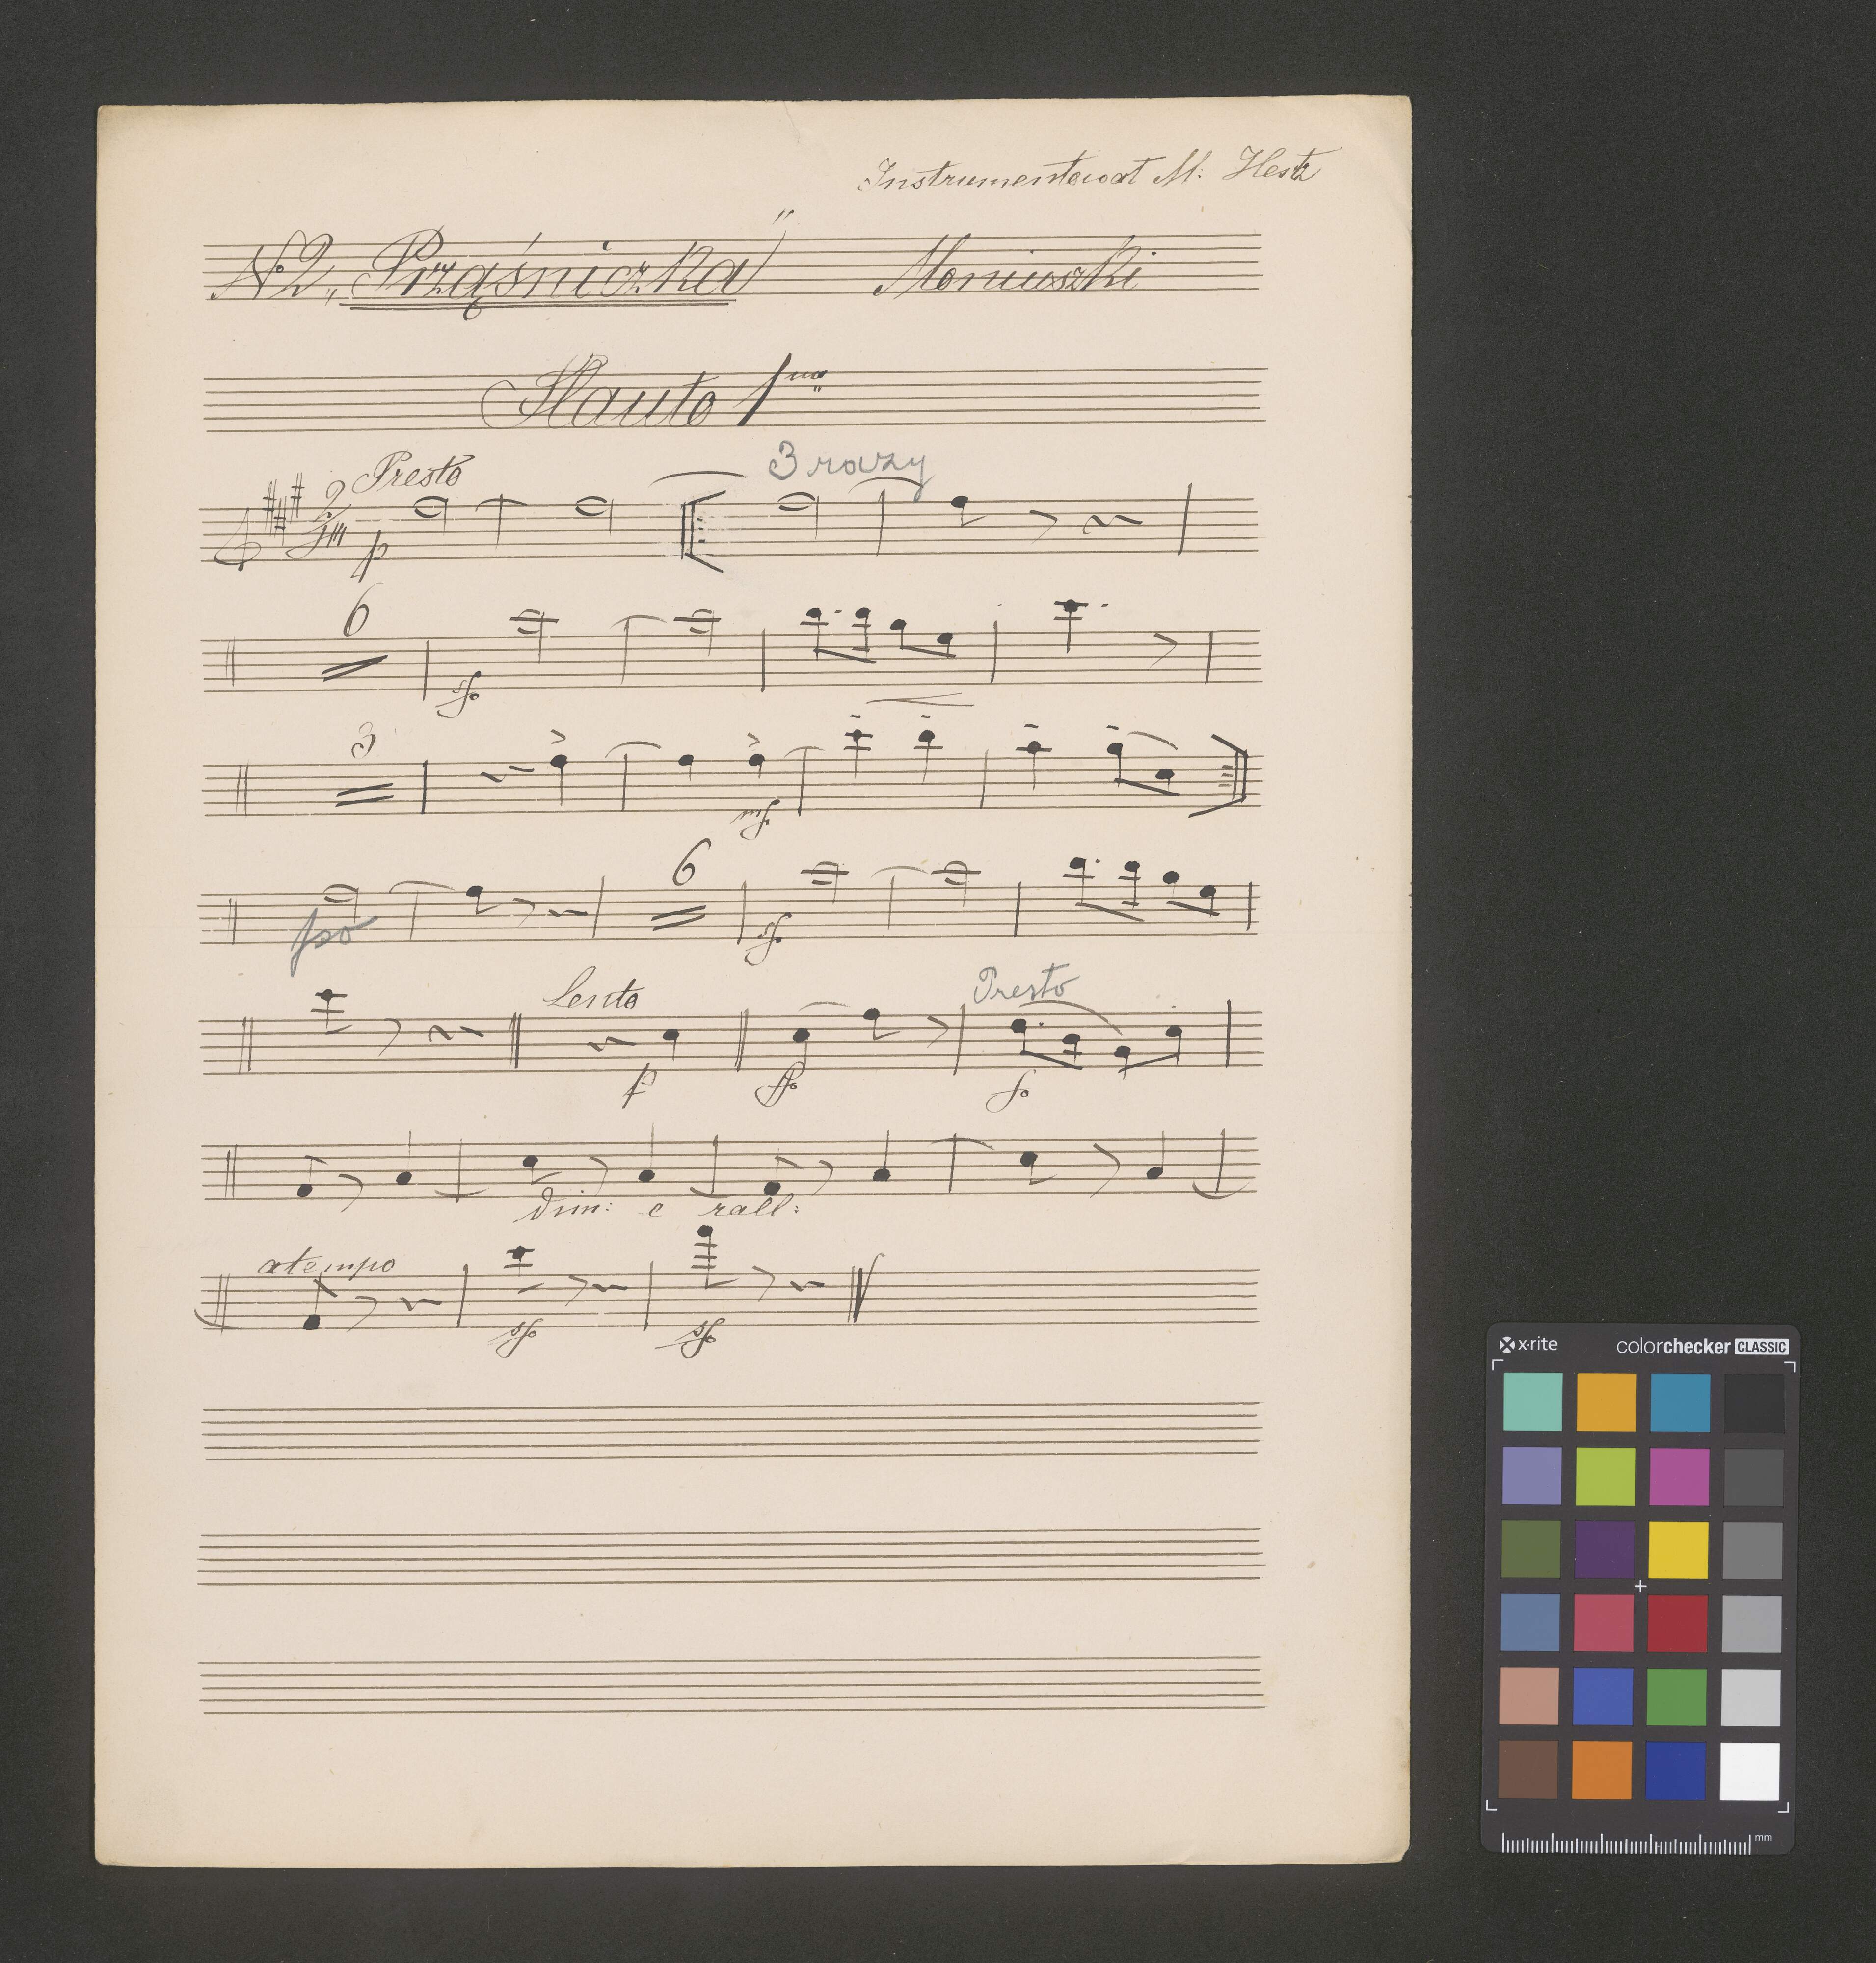 Instrumentował M: Hertz
№ 2 „Prząśniczka" Moniuszki
Flauto 1mo
Presto 3 razy
2/4
p
6
sfo
3
mf.
6
pso
sf.
Lento Presto
p ffo fo
dim: e rall:
atempo
sfo sfo
x·rite colorchecker CLASSIC
mm